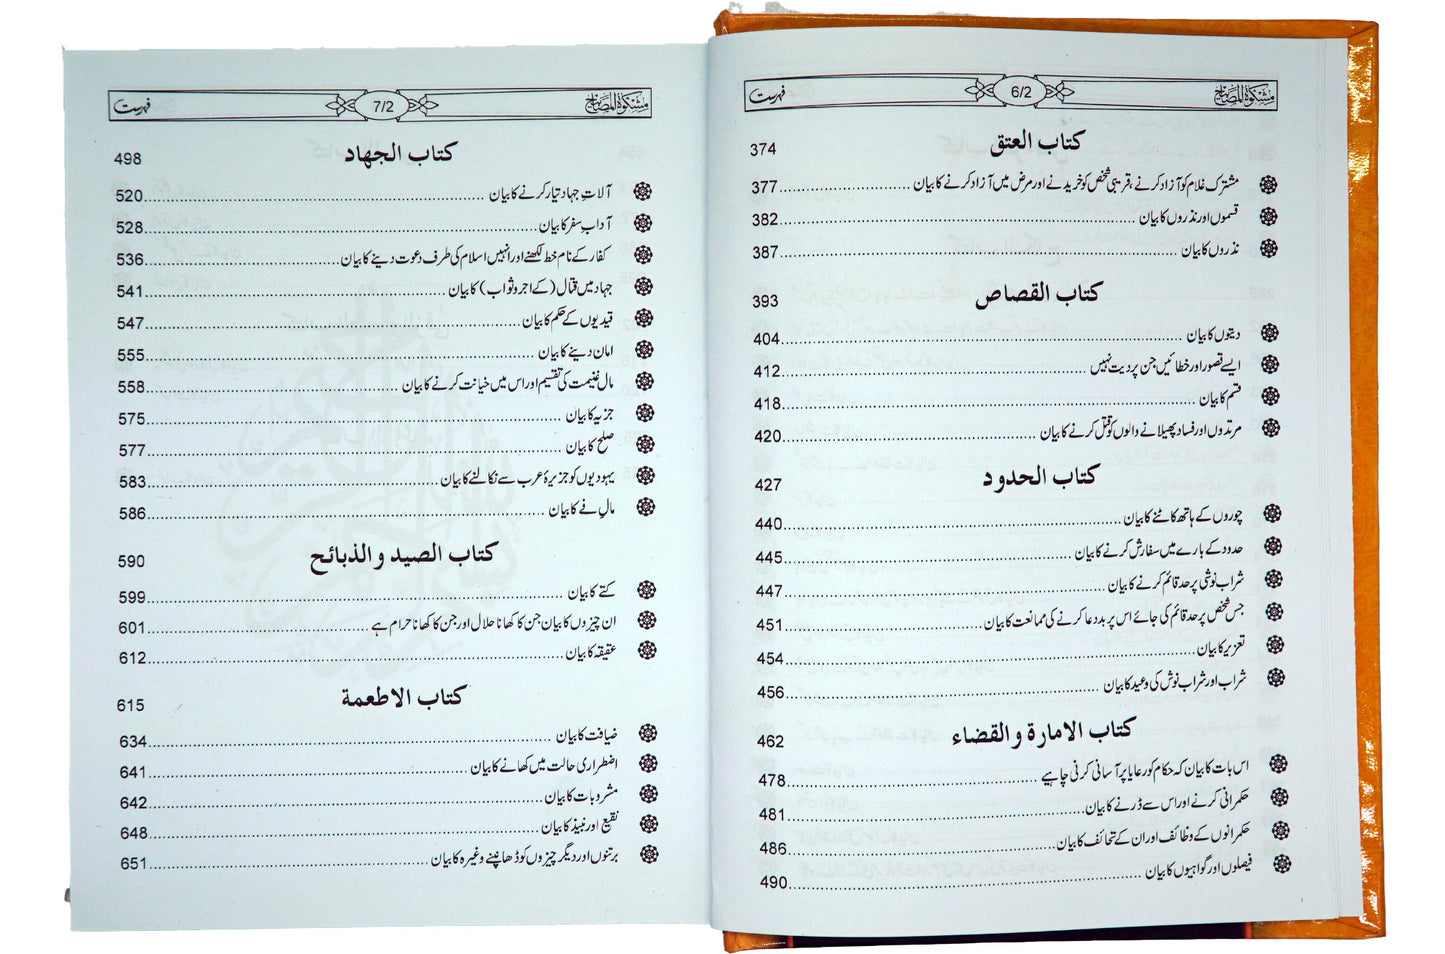 مشکوٰۃ المصابیح 6/2 فہرست
کتاب العتق 374
مشترک غلام کو آزاد کرنے، قریبی شخص کو خریدنے اور مرض میں آزاد کرنے کا بیان 377
قسموں اور نذروں کا بیان 382
نذروں کا بیان 387
کتاب القصاص 393
دیتوں کا بیان 404
ایسے قصور اور خطائیں جن پر دیت نہیں 412
قسم کا بیان 418
مرتدوں اور فساد پھیلانے والوں کو قتل کرنے کا بیان 420
کتاب الحدود 427
چوروں کے ہاتھ کاٹنے کا بیان 440
حدود کے بارے میں سفارش کرنے کا بیان 445
شراب نوشی پر حد قائم کرنے کا بیان 447
جس شخص پر حد قائم کی جائے اس پر بددعا کرنے کی ممانعت کا بیان 451
تعزیر کا بیان 454
شراب اور شراب نوش کی وعید کا بیان 456
کتاب الامارة والقضاء 462
اس بات کا بیان کہ حکام کو رعایا پر آسانی کرنی چاہیے 478
حکمرانی کرنے اور اس سے ڈرنے کا بیان 481
حکمرانوں کے وظائف اور ان کے تحائف کا بیان 486
فیصلوں اور گواہیوں کا بیان 490
مشکوٰۃ المصابیح 7/2 فہرست
کتاب الجهاد 498
آلاتِ جہاد تیار کرنے کا بیان 520
آداب سفر کا بیان 528
کفار کے نام خط لکھنے اور انہیں اسلام کی طرف دعوت دینے کا بیان 536
جہاد میں قتال (کے اجر و ثواب) کا بیان 541
قیدیوں کے حکم کا بیان 547
امان دینے کا بیان 555
مال غنیمت کی تقسیم اور اس میں خیانت کرنے کا بیان 558
جزیہ کا بیان 575
صلح کا بیان 577
یہودیوں کو جزیرۂ عرب سے نکالنے کا بیان 583
مالِ فے کا بیان 586
کتاب الصید والذبائح 590
کتے کا بیان 599
ان چیزوں کا بیان جن کا کھانا حلال اور جن کا کھانا حرام ہے 601
عقیقہ کا بیان 612
کتاب الاطعمة 615
ضیافت کا بیان 634
اضطراری حالت میں کھانے کا بیان 641
مشروبات کا بیان 642
نقیع اور نبیذ کا بیان 648
برتنوں اور دیگر چیزوں کو ڈھانپنے وغیرہ کا بیان 651